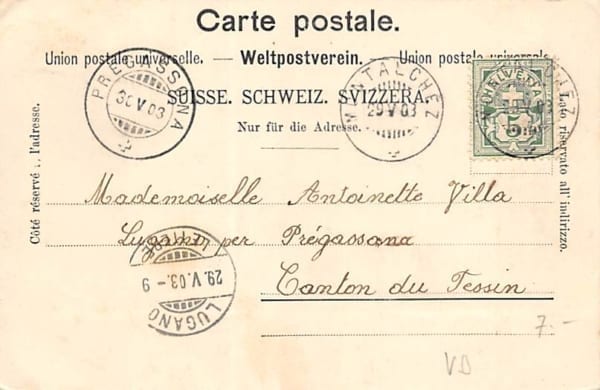 Carte postale.
Union postale universelle. — Weltpostverein. — Union postale universale
SUISSE. SCHWEIZ. SVIZZERA.
Nur für die Adresse.
Côté réservé à l'adresse.
Lato riservato all'indirizzo.
PREGASSONA
30 V 03
MONTALCHEZ
29 V 03
MONTALCHEZ
29 V 03
5
Mademoiselle Antoinette Villa
Lugano per Prégassona
Canton du Tessin
LETTRE
29. V. 03. - 9
LUGANO
7.-
VD